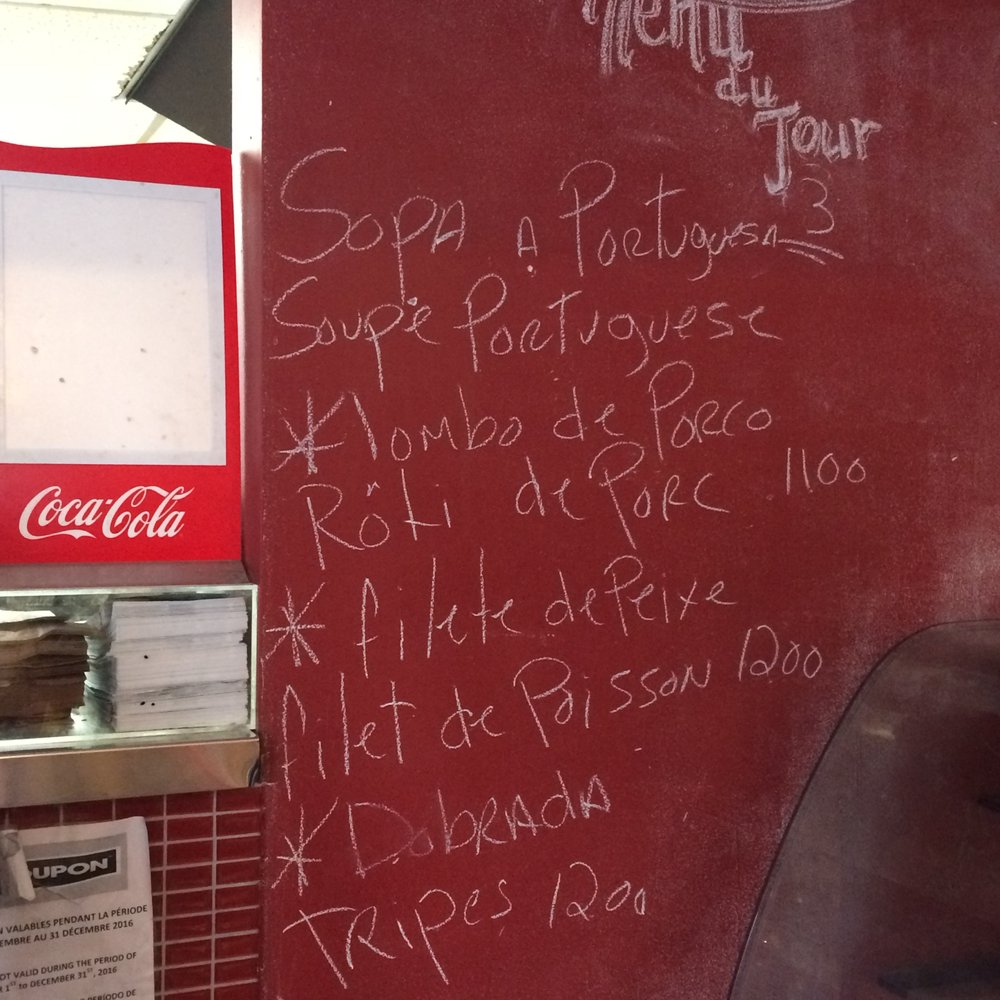 Menu
du
Jour
Sopa a Portuguesa 3
Soupe Portuguese
* lombo de Porco
Rôti de Porc 1100
* filete de Peixe
filet de Poisson 1200
* Dobrada
Tripes 1200
Coca-Cola
UPON
N VALABLES PENDANT LA PÉRIODE
EMBRE AU 31 DÉCEMBRE 2016
OT VALID DURING THE PERIOD OF
R 1ST to DECEMBER 31ST, 2016
PERÍODO DE